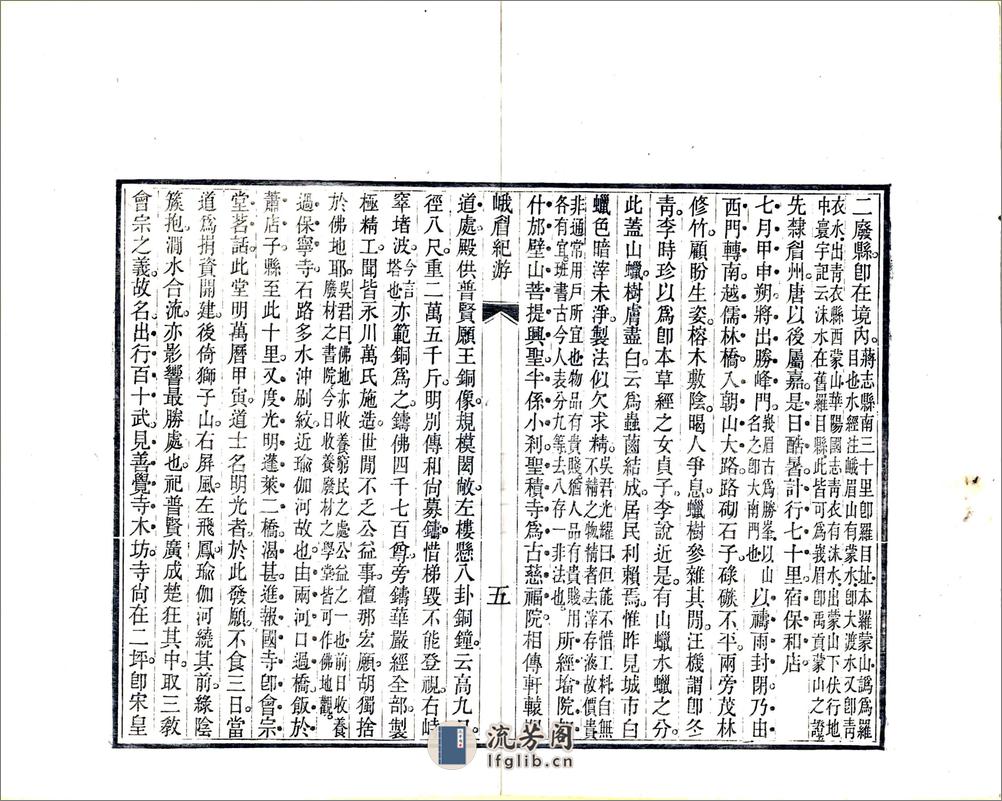 二廢縣卽在境內蔣志縣南三十里卽羅目址本羅蒙山譌爲羅目也水經注峨眉山有蒙水卽大渡水又卽靑
衣水出靑衣縣西蒙山華陽國志靑衣有沬水出蒙山下伏行地中寰宇記云沬水在舊羅目縣此皆可爲峩眉卽禹貢蒙山之證
先隸眉州唐以後屬嘉是日酷暑計行七十里宿保和店
七月甲申朔將出勝峰門峩眉古爲勝峯以山名之卽大南門也以禱雨封閉乃由
西門轉南越儒林橋入朝山大路路砌石子碌磙不平兩旁茂林
修竹顧盼生姿榕木敷陰暍人爭息蠟樹參雜其閒汪機謂卽冬
靑李時珍以爲卽本草經之女貞子李說近是有山蠟水蠟之分
此蓋山蠟樹膚盡白云爲蟲齧結成居民利賴焉惟昨見城市白
蠟色暗滓未淨製法似欠求精吳君光耀曰但能不惜工料自無不精之物精者去滓存液故價貴
非通常用戶所宜也物品有貴賤猶人品有貴賤用各有宜班書古今人表分九等去八存一非法也所經墖院如
什邡壁山菩提興聖半係小刹聖積寺爲古慈福院相傳軒轅
峨眉紀游
五
道處殿供普賢願王銅像規模閎敞左樓懸八卦銅鐘云高九尺
徑八尺重二萬五千斤明別傳和尙募鑄惜梯毀不能登視右峙
窣堵波今言塔也亦範銅爲之鑄佛四千七百尊旁鑄華嚴經全部製
極精工聞皆永川萬氏施造世閒不乏公益事檀那宏願胡獨捨
於佛地耶吳君曰佛地亦收養窮民之處公益之一也前日收養廢材之書院今日收養廢材之學堂皆可作佛地觀
過保寧寺石路多水沖刷紋近瑜伽河故也由兩河口過橋飯於
蕭店子縣至此十里又度光明蓬萊二橋渴甚進報國寺卽會宗
堂茗話此堂明萬曆甲寅道士名明光者於此發願不食三日當
道爲捐資開建後倚獅子山右屏風左飛鳳瑜伽河繞其前綠陰
簇抱澗水合流亦影響最勝處也祀普賢廣成楚狂其中取三敎
會宗之義故名出行百十武見善覺寺木坊寺尙在二坪卽宋皇
流芳阁
lfglib.cn